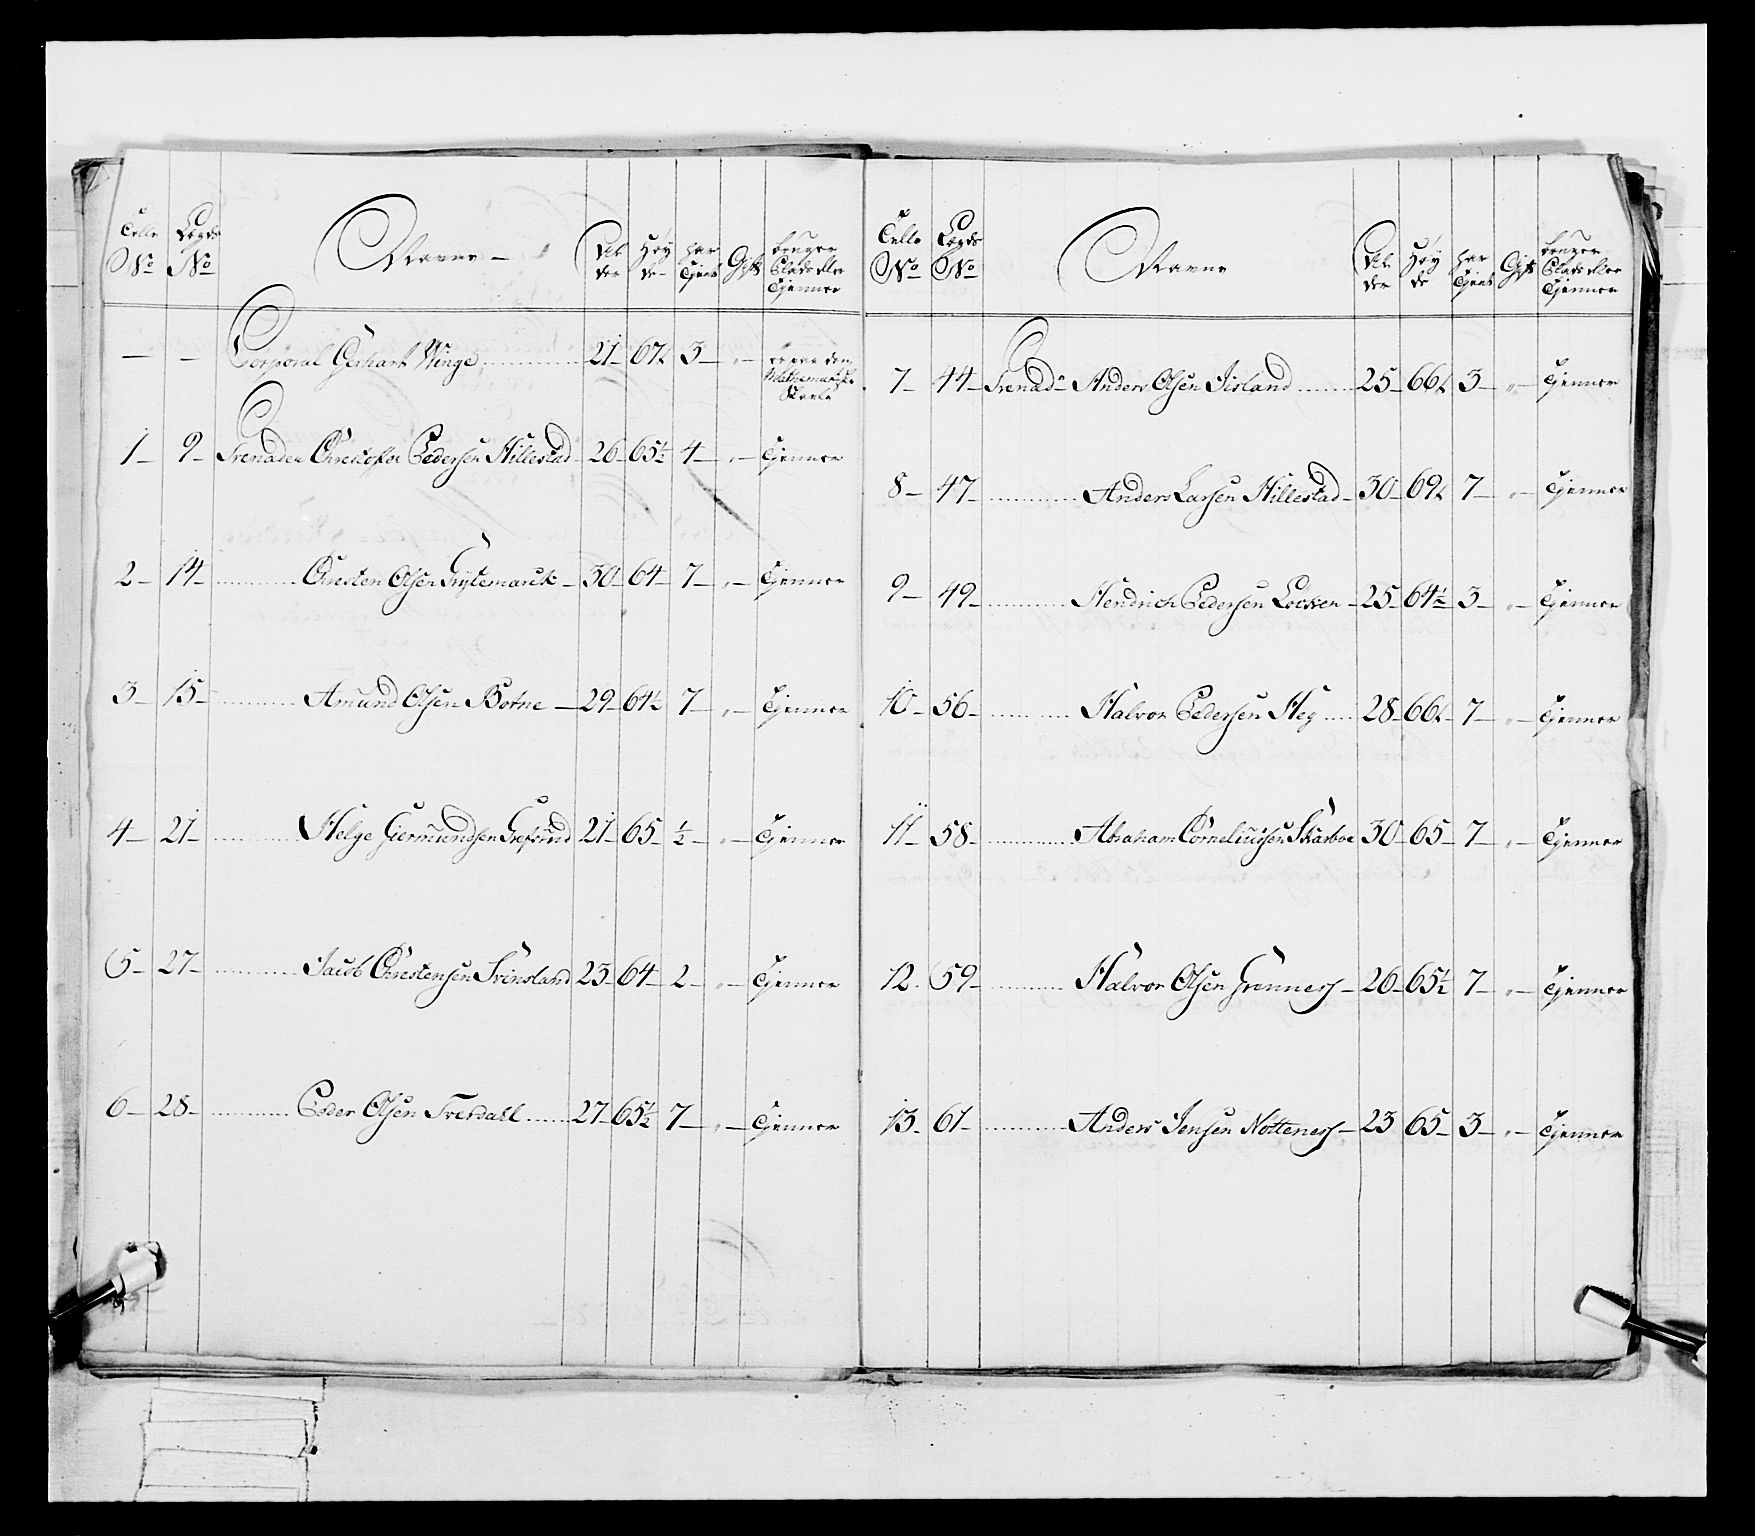 Telle No Legds No Navne – Al der Høy de Har tient Gift bruger Plads eller tienner
— — Corporal Gerhart Winge 21 67 3 er paa den Mathematiske Skoele
1 9 Grenadeer Christopher Pedersen Hillestad 26 65½ 4 „ tienner
2 14 Christen Olsen Grytemarck 30 64 7 „ tienner
3 15 Amund Olsen Botne 29 64½ 7 „ tienner
4 21 Helge Giermundsen Grefsrud 21 65 ½ „ tienner
5 27 Jacob Christensen Svinsland 23 64 2 „ tienner
6 28 Peder Olsen Tverdall 27 65½ 7 „ tienner
Telle No Legds No Navne Al der Høy de Har tient Gift bruger Plads eller tienner
7 44 Grenadr Anders Olsen Island 25 66 3 „ tienner
8 47 Anders Larsen Hillestad 30 69 7 „ tienner
9 49 Hendrich Pedersen Löcken 25 64½ 3 „ tienner
10 56 Halvor Pedersen Heg 28 66 7 „ tienner
11 58 Abraham Corneliussen Skarboe 30 65 7 „ tienner
12 59 Halvor Olsen Grenness 26 65½ 7 „ tienner
13 61 Anders Jensen Nötteness 23 65 3 „ tienner